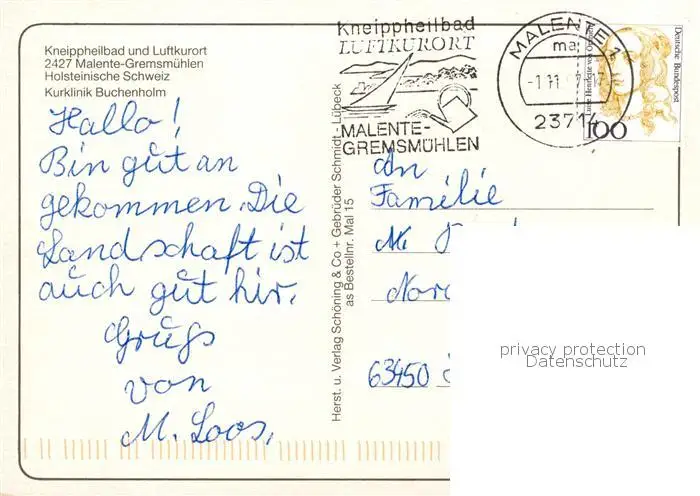 Kneippheilbad und Luftkurort
2427 Malente-Gremsmühlen
Holsteinische Schweiz
Kurklinik Buchenholm
Hallo!
Bin gut an
gekommen. Die
Landschaft ist
auch gut hir.
Grugs
von
M. Loos.
Herst. u. Verlag Schöning & Co + Gebrüder Schmidt · Lübeck
as Bestellnr. Mal 15
Kneippheilbad
LUFTKURORT
MALENTE-
GREMSMÜHLEN
MALENTE 1
ma
-1.11.
23714
Deutsche Bundespost
100
An
Familie
M.
63450
privacy protection
Datenschutz